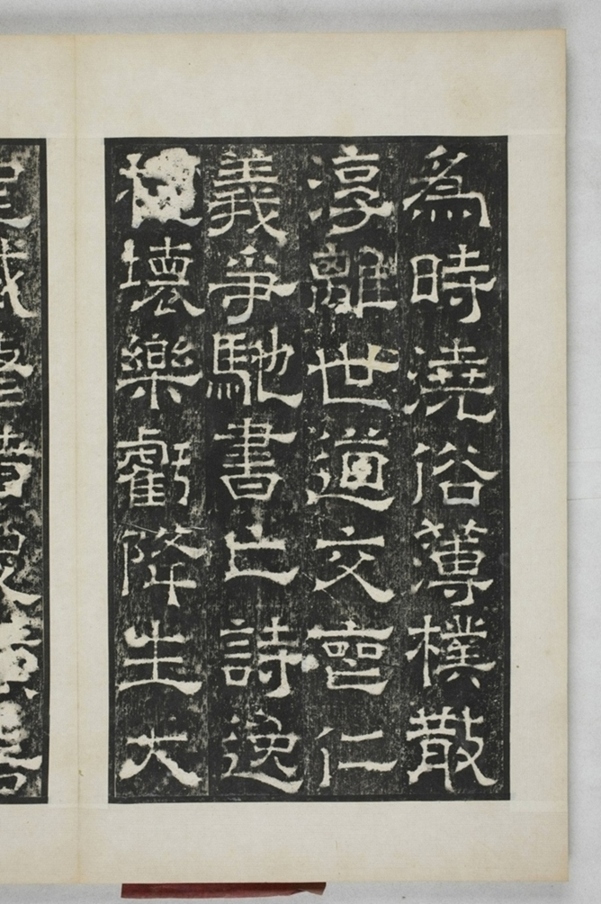 為時澆俗薄樸散
淳離世道交喪仁
義爭馳書亡詩逸
禮壞樂虧降生大